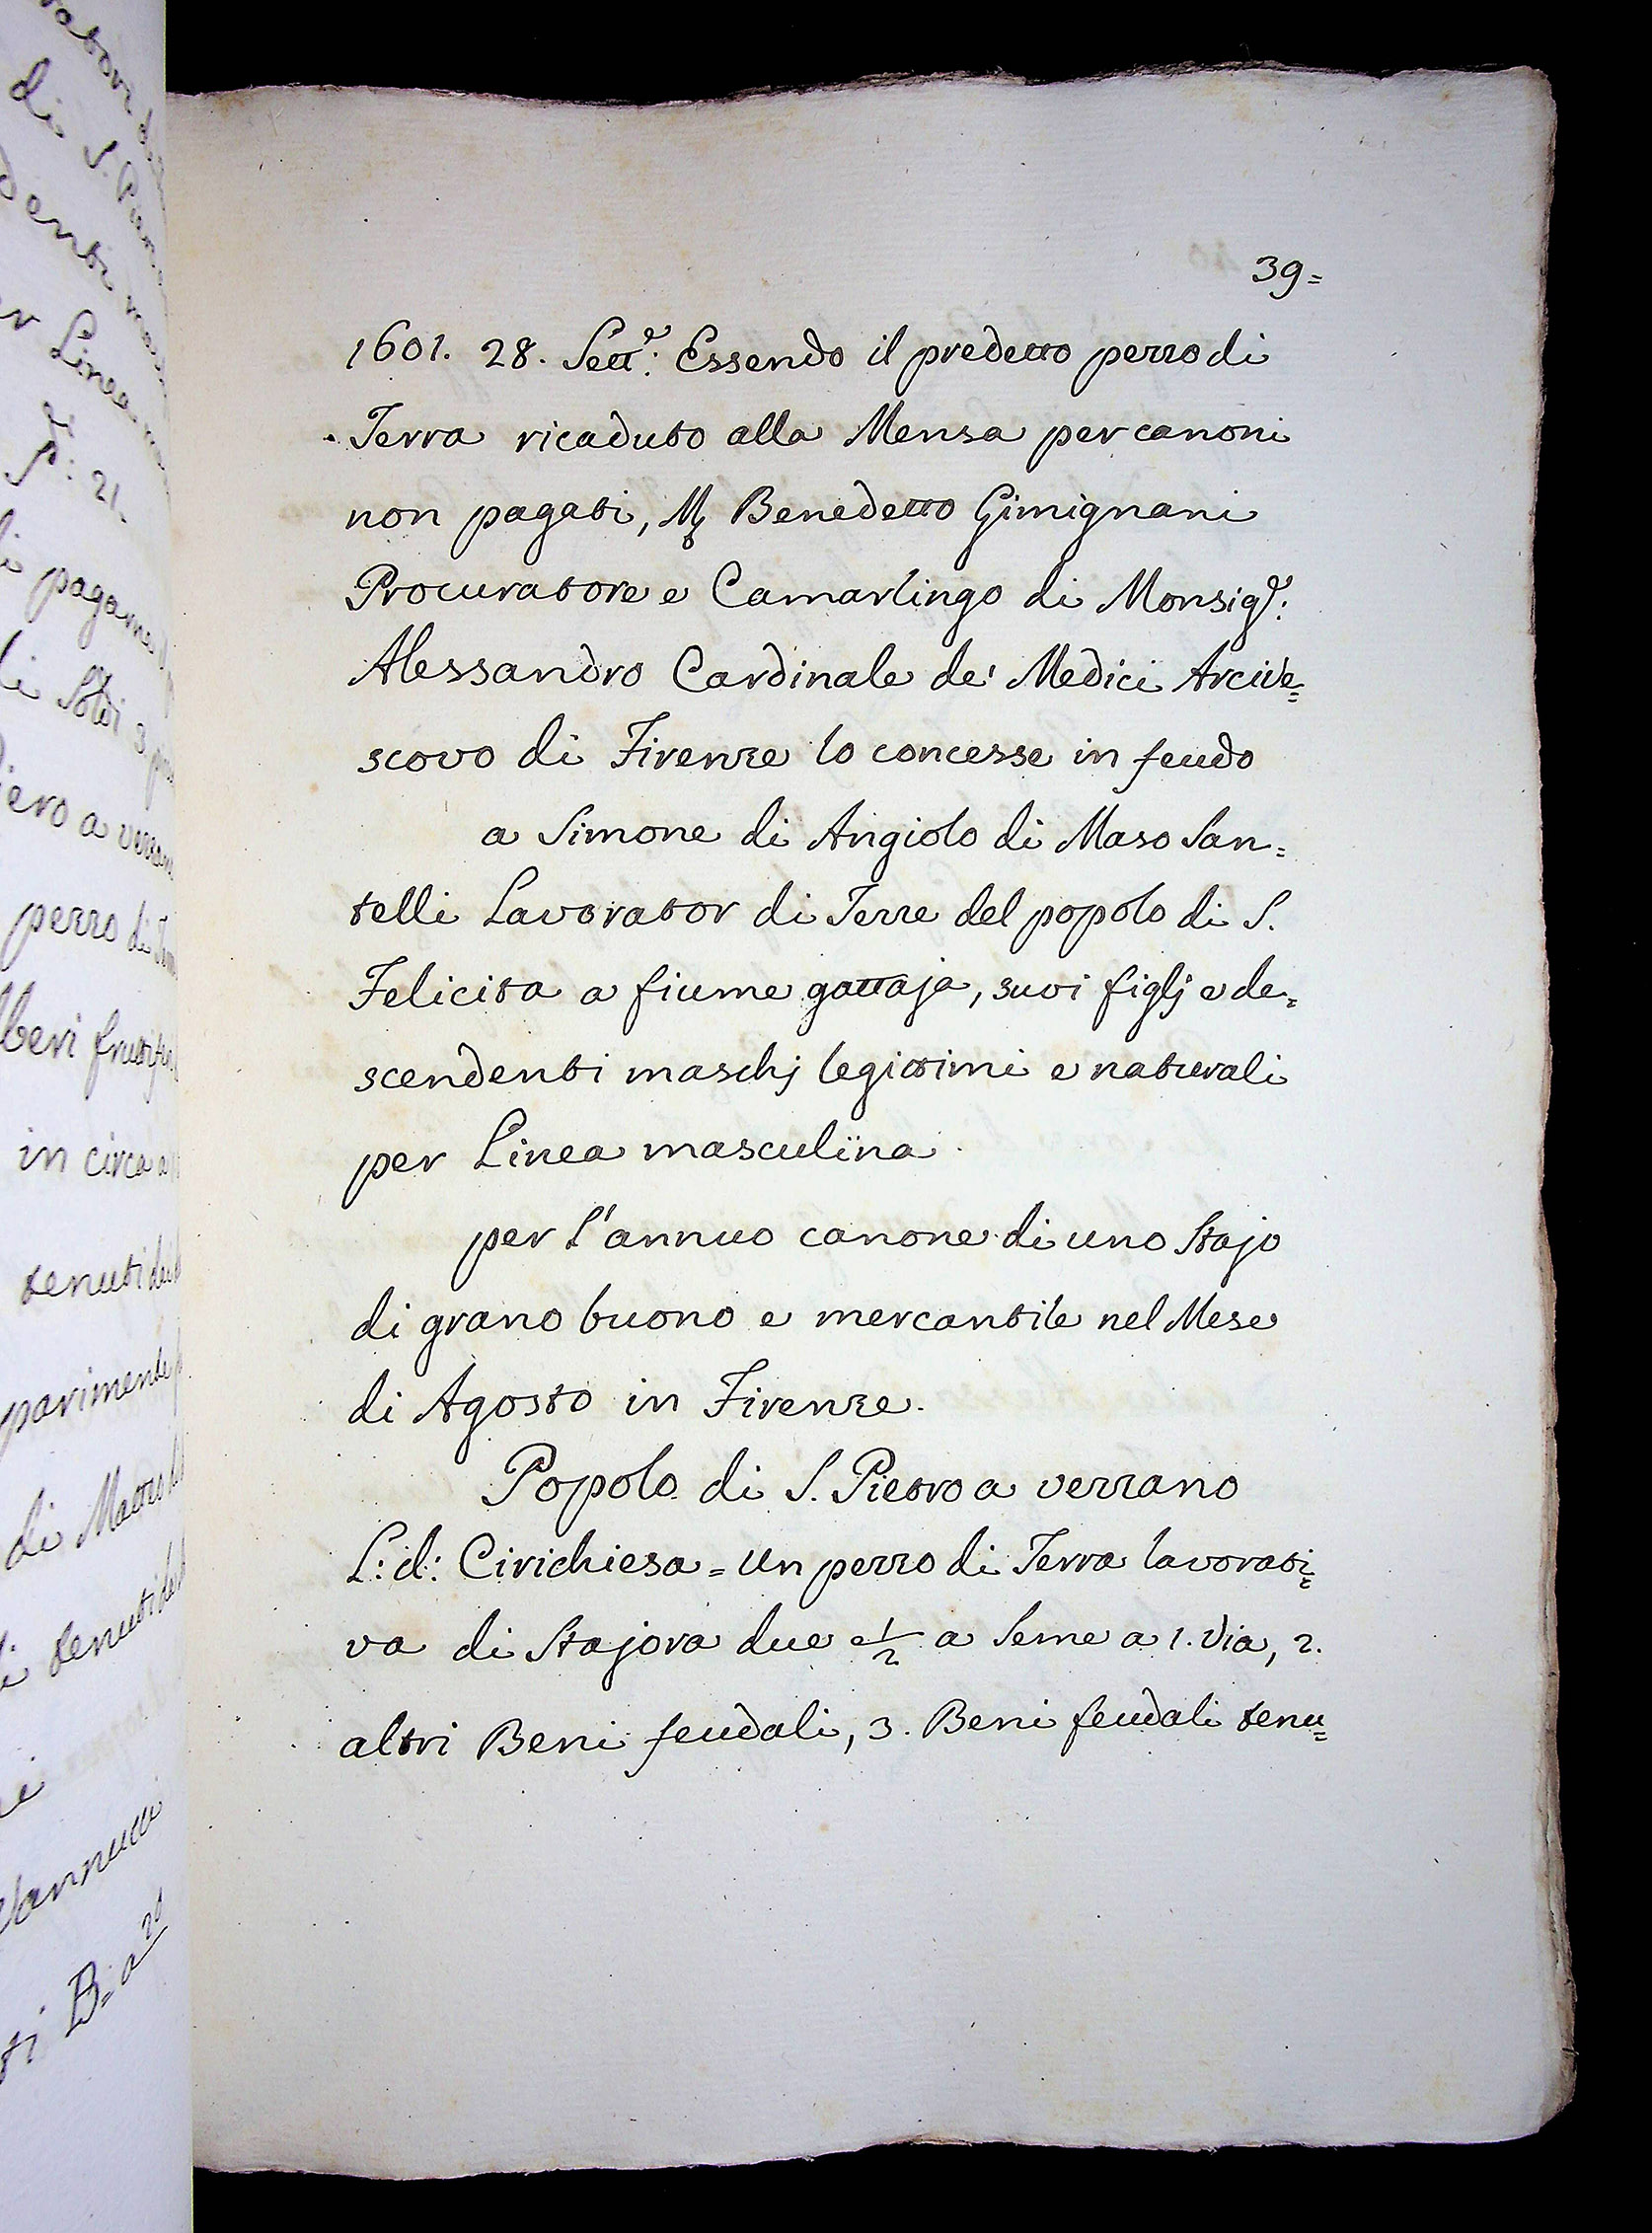 39=
1601. 28. Sett.e: Essendo il predetto pezzo di
Terra ricaduto alla Mensa per canoni
non pagati, Mr Benedetto Gimignani
Procuratore e Camarlingo di Monsigr:
Alessandro Cardinale de' Medici Arcive=
scovo di Firenze lo concesse in feudo
a Simone di Angiolo di Maso San=
telli Lavorator di Terre del popolo di S.
Felicita a fiume gattaja, suoi figlj e de=
scendenti maschj legittimi e naturali
per Linea masculina.
per l'annuo canone di uno Stajo
di grano buono e mercantile nel Mese
di Agosto in Firenze.
Popolo di S. Pietro a vezzano
L: d: Cirichiesa = Un pezzo di Terra lavorati=
va di Stajora due e 1/2 a Seme a 1. Via, 2.
altri Beni feudali, 3. Beni feudali tenu=
di S.
Linea
P: 21.
pagame
di Soldi 3.
iero a vezzano
pezzo di
beri frutti
in circa a
tenuti
parimente
di Matteo
tenuti
Vannucci
ti B=a